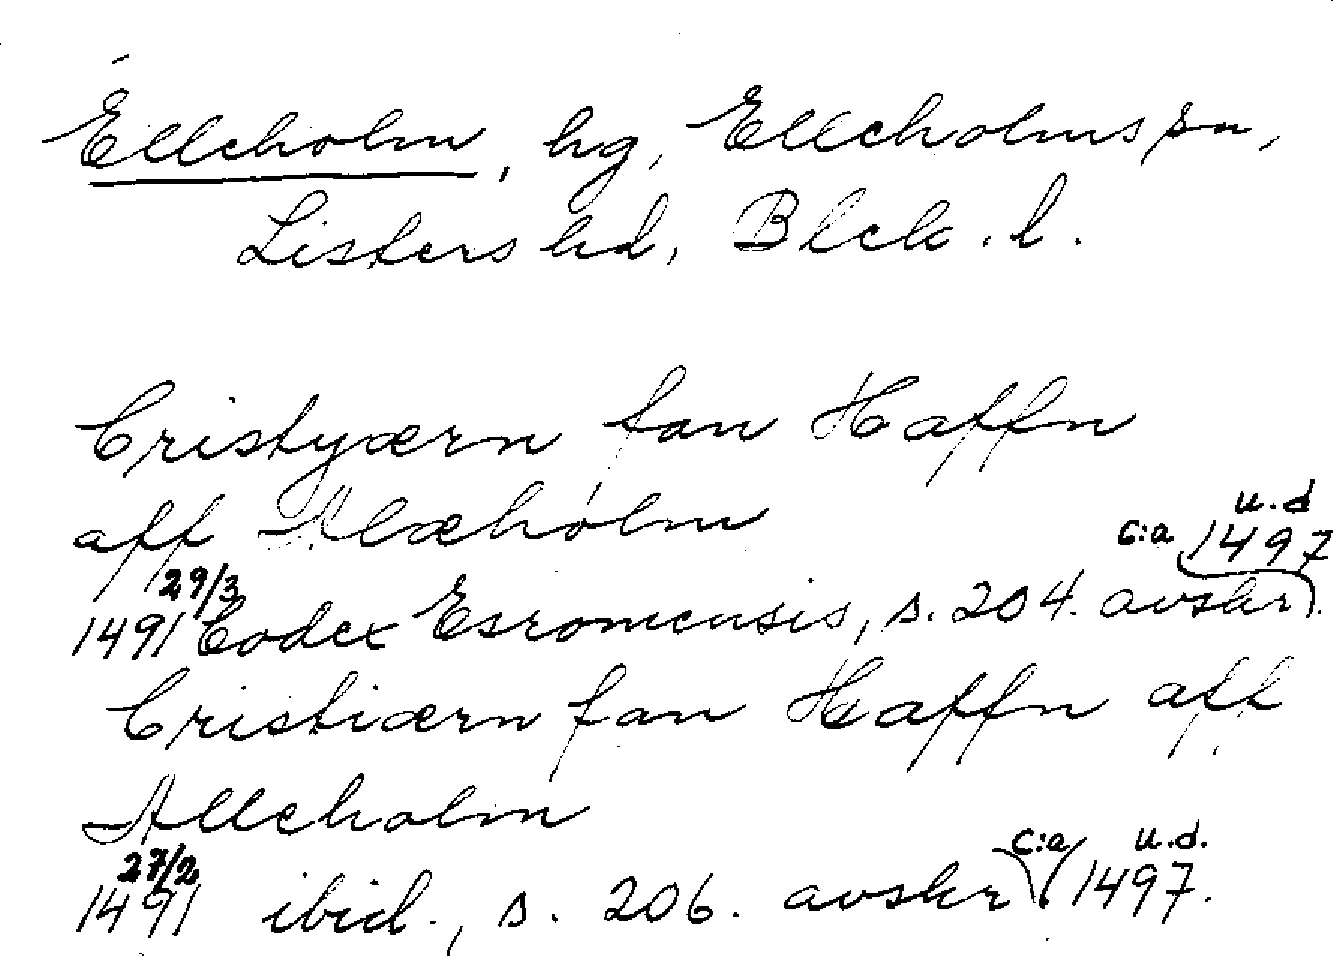 Elleholm, hg, Elleholms sn,
Listers hd, Blek. l.
Cristyærn fan Haffn
aff Alæholm
29/3 c:a u.d
1491 Codex Esromensis, s. 204. avskr 1497.
Cristiærn fan Haffn aff
Alleholm
27/2 c:a u.d.
1491 ibid., s. 206. avskr 1497.